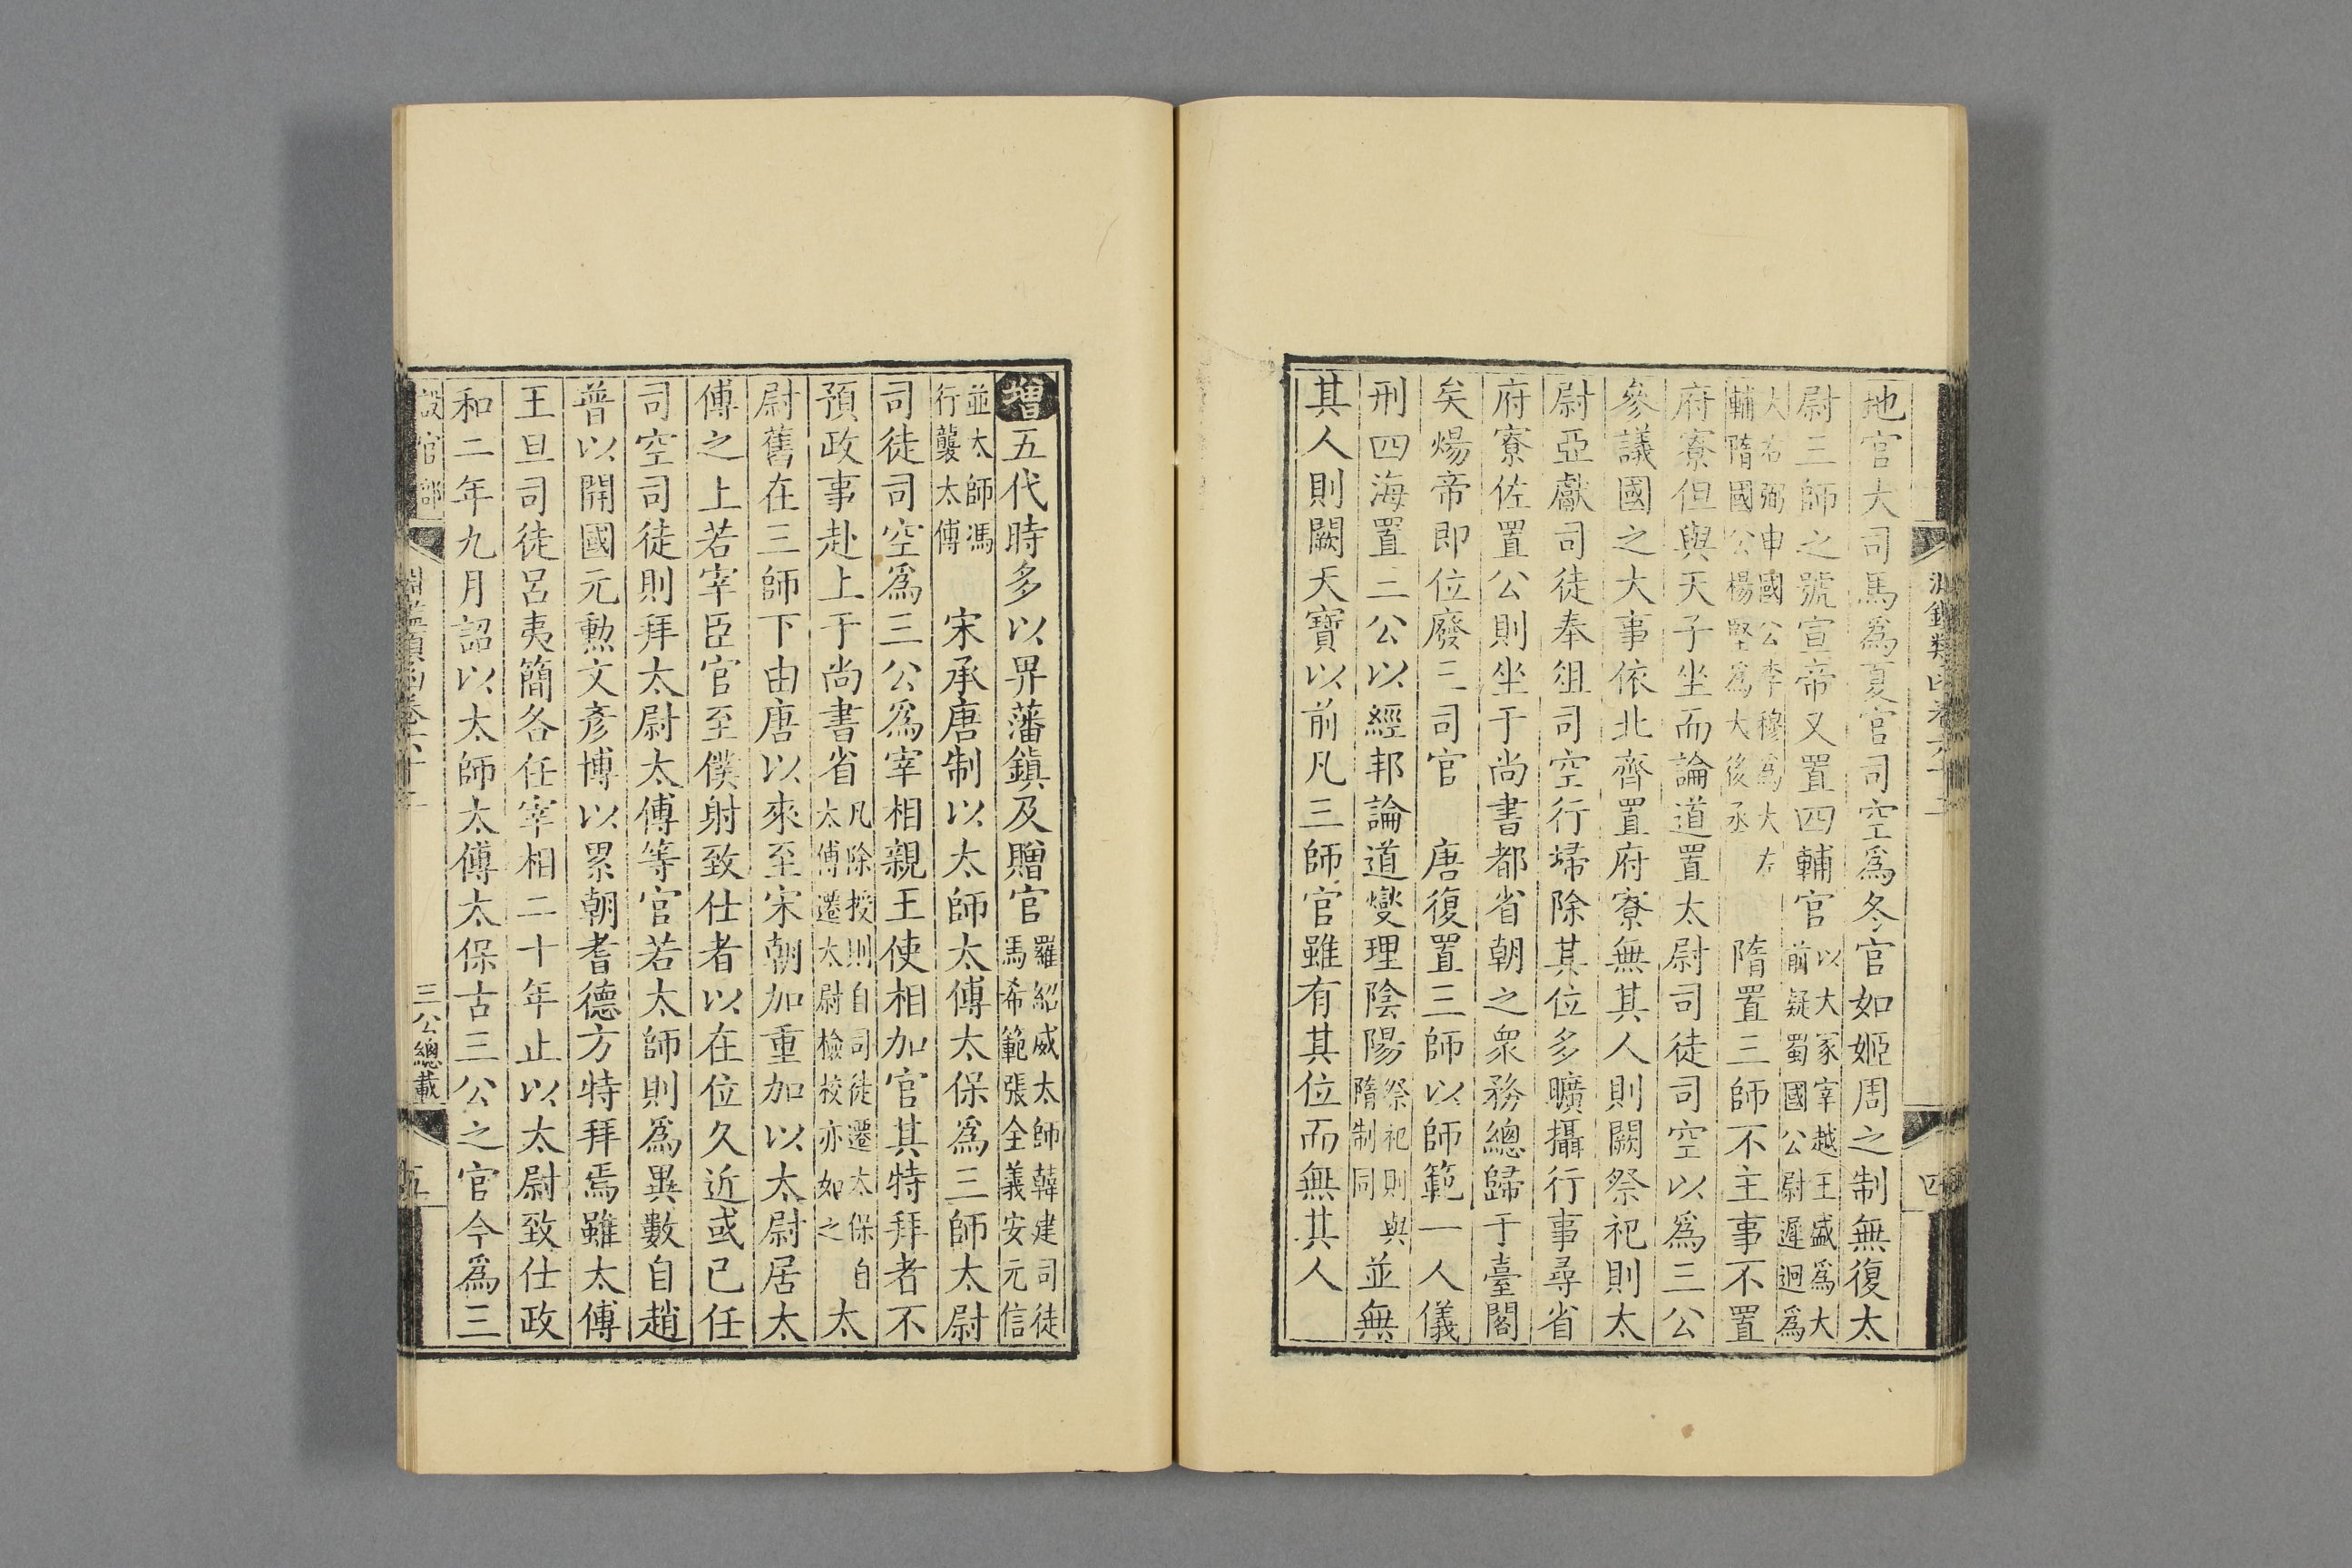 地官大司馬爲夏官司空爲冬官如姬周之制無復太
尉三師之號宣帝又置四輔官以大冢宰越王盛爲大前疑蜀國公尉遲迥爲
大右弼申國公李穆爲大左輔隋國公楊堅爲大後丞 隋置三師不主事不置
府寮但與天子坐而論道置太尉司徒司空以爲三公
參議國之大事依北齊置府寮無其人則闕祭祀則太
尉亞獻司徒奉俎司空行埽除其位多曠攝行事尋省
府寮佐置公則坐于尚書都省朝之衆務總歸于臺閣
矣煬帝即位廢三司官 唐復置三師以師範一人儀
刑四海置三公以經邦論道燮理陰陽祭祀則與隋制同並無
其人則闕天寶以前凡三師官雖有其位而無其人
四
增五代時多以畀藩鎮及贈官羅紹威太師韓建司徒馬希範張全義安元信
並太師馮行襲太傅 宋承唐制以太師太傅太保爲三師太尉
司徒司空爲三公爲宰相親王使相加官其特拜者不
預政事赴上于尚書省凡除授則自司徒遷太保自太傅遷太尉檢校亦如之太
尉舊在三師下由唐以來至宋朝加重加以太尉居太
傅之上若宰臣官至僕射致仕者以在位久近或已任
司空司徒則拜太尉太傅等官若太師則爲異數自趙
普以開國元勲文彥博以累朝耆德方特拜焉雖太傅
王旦司徒呂夷簡各任宰相二十年止以太尉致仕政
和二年九月詔以太師太傅太保古三公之官今爲三
設官部
三公總載
五